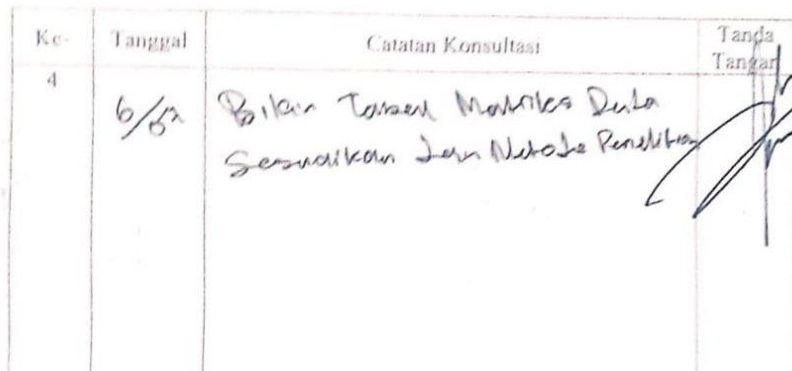 Ke- Tanggal Catatan Konsultasi Tanda Tangan
4
Bikin Tabel Matriks Data
Sesuaikan dgn Metode Penelitian